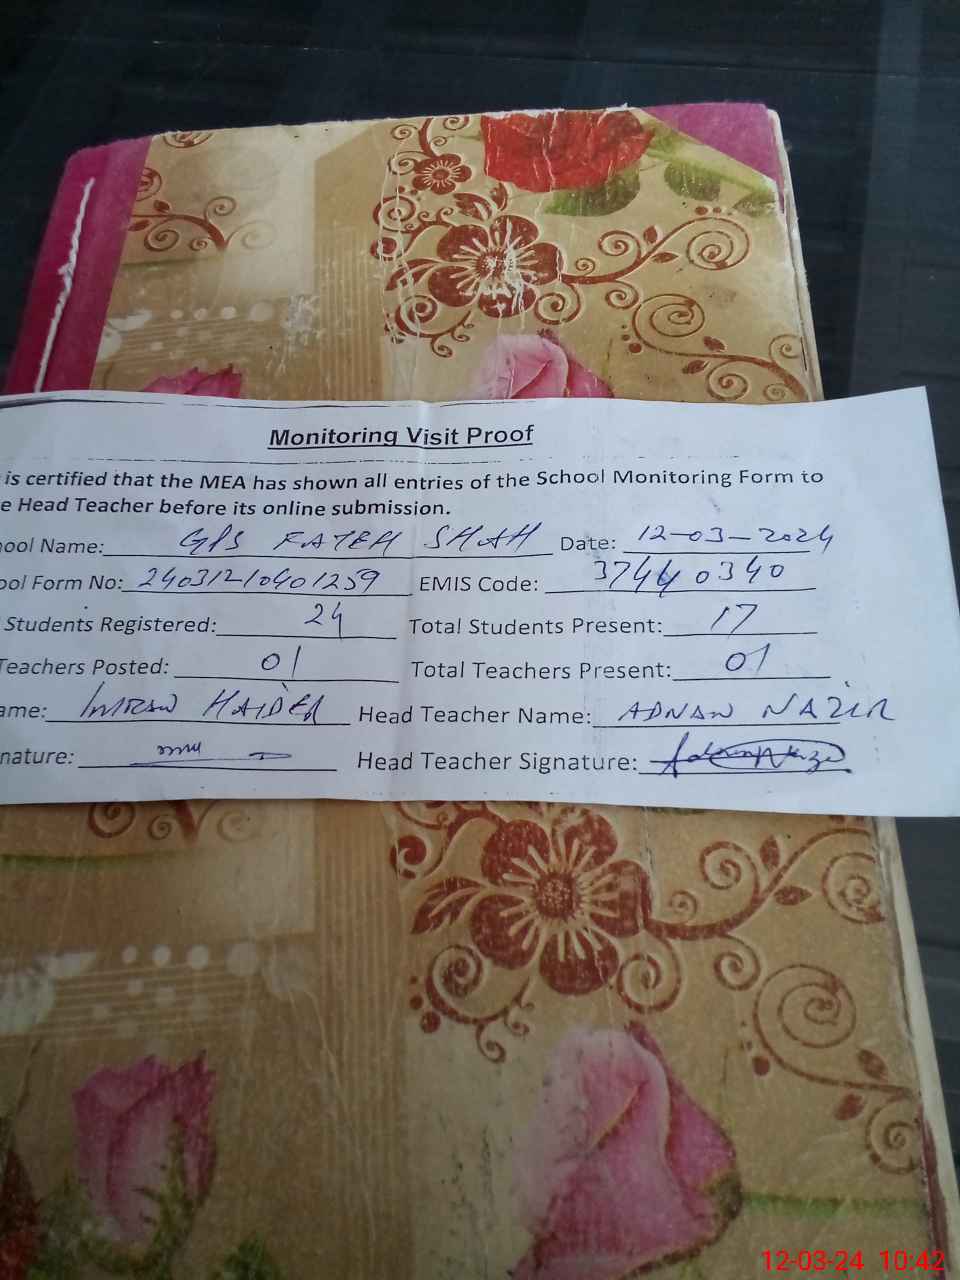 Monitoring Visit Proof
is certified that the MEA has shown all entries of the School Monitoring Form to
e Head Teacher before its online submission.
ool Name: GPS FATEH SHAH Date: 12-03-2024
ool Form No: 24031210401259 EMIS Code: 37440340
Students Registered: 24 Total Students Present: 17
Teachers Posted: 01 Total Teachers Present: 01
ame: IMRAN HAIDER Head Teacher Name: ADNAN NAZIR
nature: Head Teacher Signature:
12-03-24 10:42